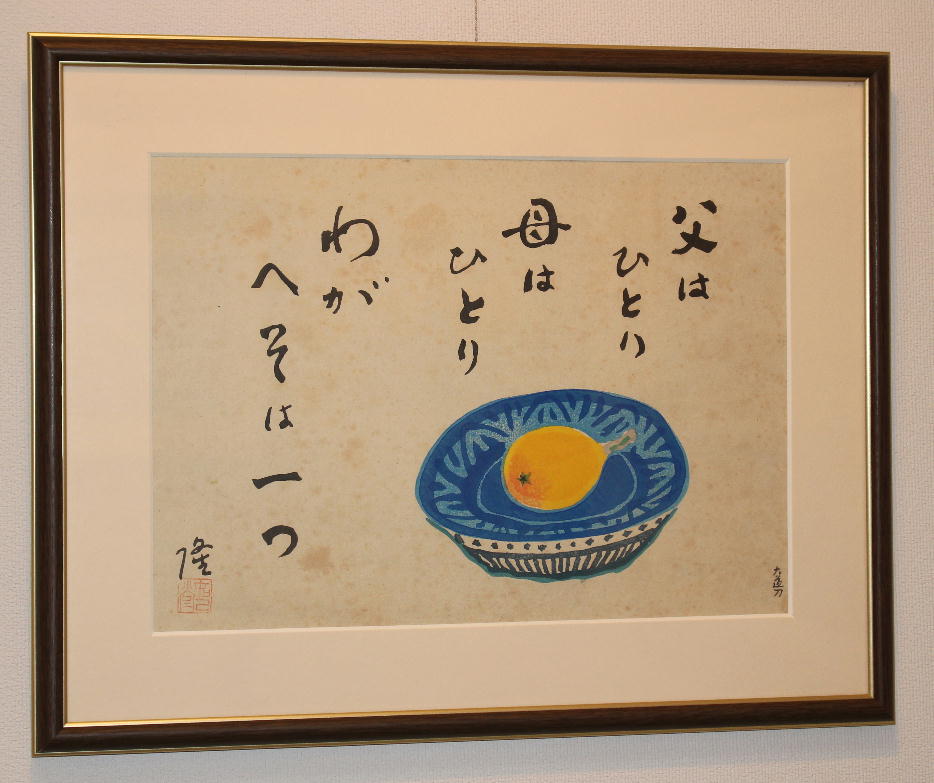 父は
ひとり
母は
ひとり
わが
へそは一つ
隆